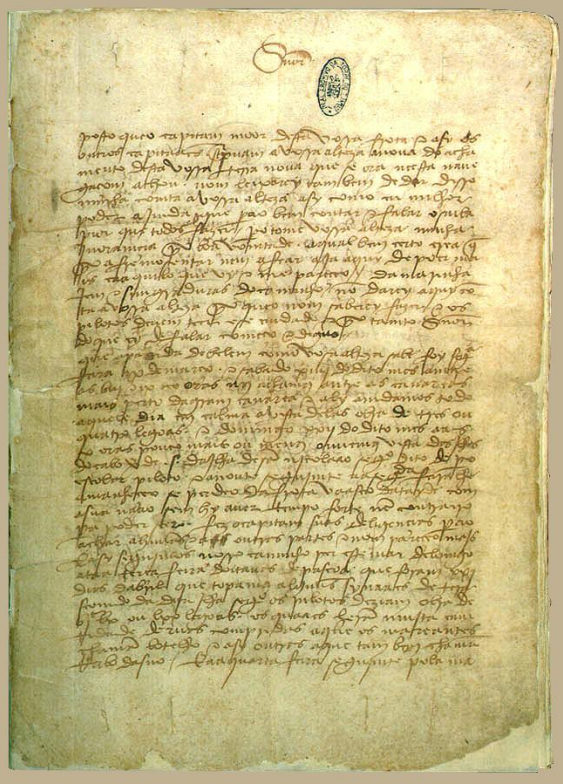 Snõr
posto queo capitam moor desta vossa frota e asy os
outros capitaães screpuam a vossa alteza anoua do acha
mento desta vossa terra noua que se ora neesta naue
gaçom achou. nom leixarey tambem de dar disso
minha comta avossa alteza asy como eu milhor
poder ajmda que perao bem contar e falar o saiba
pior que todos fazer. pero tome vossa alteza minha
jnoramçia por boa vomtade. aqual bem çerto crea q̃
por afremosentar nem afear aja aquy de poer ma
is caaquilo que vy e me pareçeo. / da marinha
jem e simgraduras docaminho nõ darey aquy cõ
ta a vossa alteza porque o nom saberey fazer e os
pilotos deuem teer ese cuidado e por tanto Snõr
do que ey de falar começo e diguo.
que apartida de belem como vosa alteza sabe foy seg
feira ix de março. e sabado xiiij do dito mes amtre
as biij e ix oras nos achamos amtre as canareas
mais perto da gram canarea e aly amdamos todo
aquele dia em calma avista delas obra de tres ou
quatro legoas. e domingo xxij do dito mes aas x
oras pouco mais ou menos ouuemos vista das jlhas
do cabo verde .s. da jlha de sã njcolaao segº dito de pº
escolar piloto. e anoute segujmte aasegda feira lhe
amanheceo se perdeo da frota vaasco datayde com
asua naao sem hy auer tempo forte nẽ contrairo
pera poder seer. fez ocapitam suas deligençias perao
achar ahuũas e outras partes e nom pareçeo majs
E asy segujmos nosso caminho per este mar delomgo
ataa terça feira doitauas de pascoa que foram xxj
dias dabril que topamos alguũs synaaes de tera
seemdo da dita jlha segº os pilotos deziam obra de
bjc lx ou lxx legoas. os quaaes herã mujta cam
tidade deruas compridas aque os mareantes
chamã botelho e asy outras aque tambem chamã
rrabo dasno. / E aaquarta feira segujmte pola ma